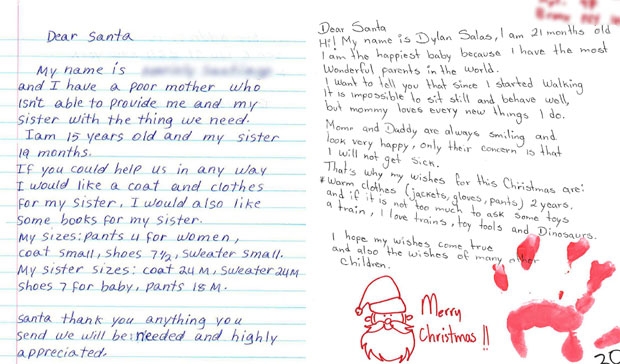 Dear Santa
My name is
and I have a poor mother who
isn't able to provide me and my
sister with the thing we need.
I am 15 years old and my sister
19 months.
If you could help us in any way
I would like a coat and clothes
for my sister, I would also like
some books for my sister.
My sizes: pants 4 for women,
coat small, shoes 7 1/2, sweater small.
My sister sizes: coat 24 M, sweater 24M
shoes 7 for baby, pants 18 M.
Santa thank you anything you
send we will be needed and highly
appreciated.
Dear Santa
Hi! My name is Dylan Salas, I am 21 months old
I am the happiest baby because I have the most
Wonderful parents in the world.
I want to tell you that since I started walking
It is impossible to sit still and behave well,
but mommy loves every new things I do.
Mome and Daddy are always smiling and
look very happy, only their concern is that
I will not get sick.
That's why my wishes for this Christmas are:
*Warm clothes (jackets, gloves, pants) 2 years.
and if it is not too much to ask some toys
a train, I love trains, toy tools and Dinosaurs.
I hope my wishes come true
and also the wishes of many other
children.
Merry
Christmas!!
20